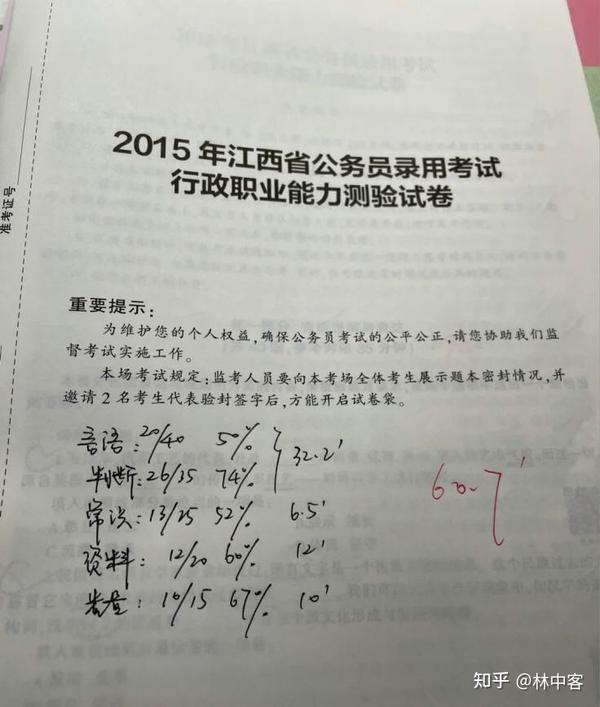 准考证号
2015年江西省公务员录用考试
行政职业能力测验试卷
重要提示:
为维护您的个人权益,确保公务员考试的公平公正,请您协助我们监
督考试实施工作。
本场考试规定:监考人员要向本考场全体考生展示题本密封情况,并
邀请2名考生代表验封签字后,方能开启试卷袋。
言语:20/40 50% 32.2'
判断:26/35 74%
常识:13/25 52% 6.5'
资料:12/20 60% 12'
数量:10/15 67% 10'
60.7'
知乎 @林中客